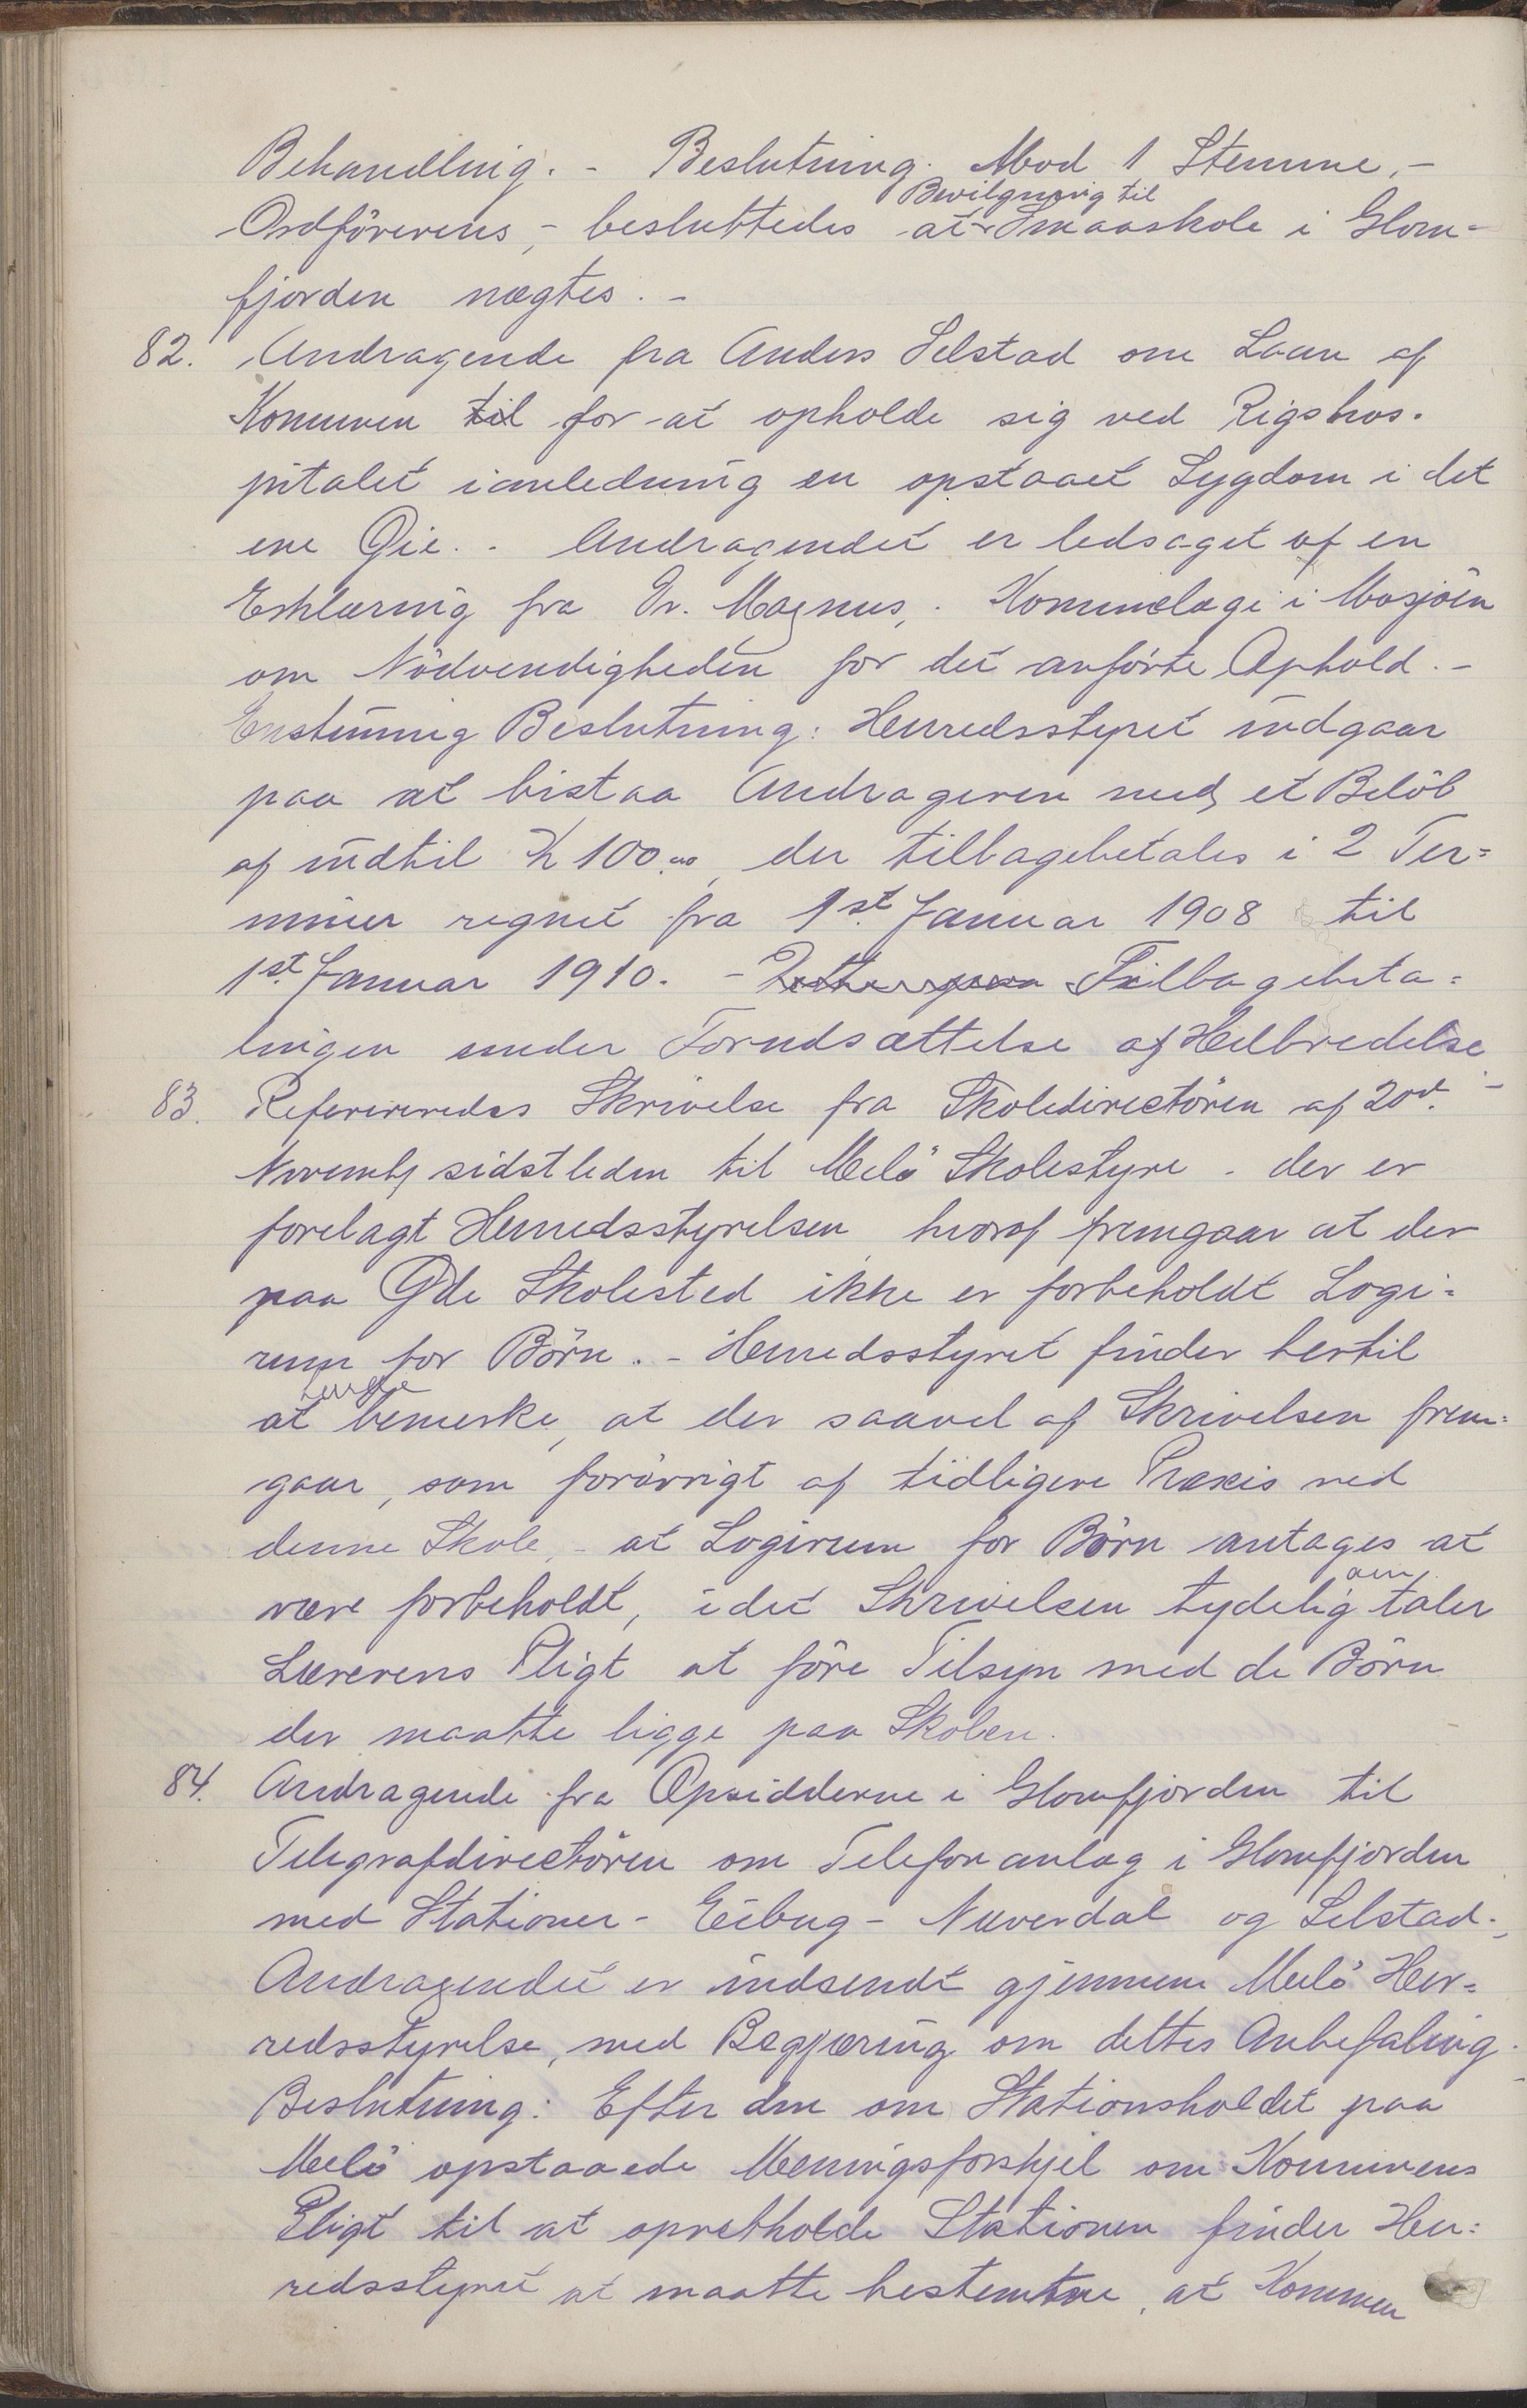 Behandling. - Beslutning. Mod 1 Stemme, -
Ordförerens, - besluttedes at Bevilgning til Smaaskole i Glom-
fjorden nægtes. -
82. Andragende fra Anders Selstad om Laan af
Komunen til for at opholde sig ved Rigshos-
pitalet ianledning en opstaaet Sygdom i det
ene Øie. - Andragendet er ledsaget af en
Erklæring fra Dr. Magnus, Komunelæge i Mosjöen
om Nödvendigheden for det anförte Ophold. -
Enstemmig Beslutning: Herredsstyret indgaar
paa at bistaa Andrageren med et Belöb
af indtil Kr 100.00, der tilbagebetales i 2 Ter=
miner regnet fra 1st. Januar 1908 til
1st. Januar 1910. - Tilbagebeta=
lingen under Forudsættelse af Helbredelse. -
83. Refereredes Skrivelse fra Skoledirectören af 20d.
Novembr sidstleden til Melö Skolestyre - der er
forelagt Herredsstyrelsen hvoraf fremgaar at der
paa Øde Skolested ikke er forbeholdt Logi=
rum for Börn. - Herredsstyret finder hertil
at burde bemerke, at der saavel af Skrivelsen frem=
gaar, som forövrigt af tidligere Praxis ved
denne Skole, - at Logirum for Börn antages at
være forbeholdt, idet Skrivelsen tydelig taler om
Lærerens Pligt at före Tilsyn med de Börn
der maatte ligge paa Skolen.
84. Andragende fra Opsidderne i Glomfjorden til
Telegrafdirectören om Telefonanlæg i Glomfjorden
med Stationer - Eibug - Næverdal og Selstad. -
Andragendet er indsendt gjennem Melö Her=
redsstyrelse, med Begjæring om dettes Anbefaling. -
Beslutning: Efter den om Stationsholdet paa
Melö opstaaede Meningsforskjel om Komunens
Pligt til at opretholde Stationen finder Her=
redsstyret at maatte bestemme, at Komunen